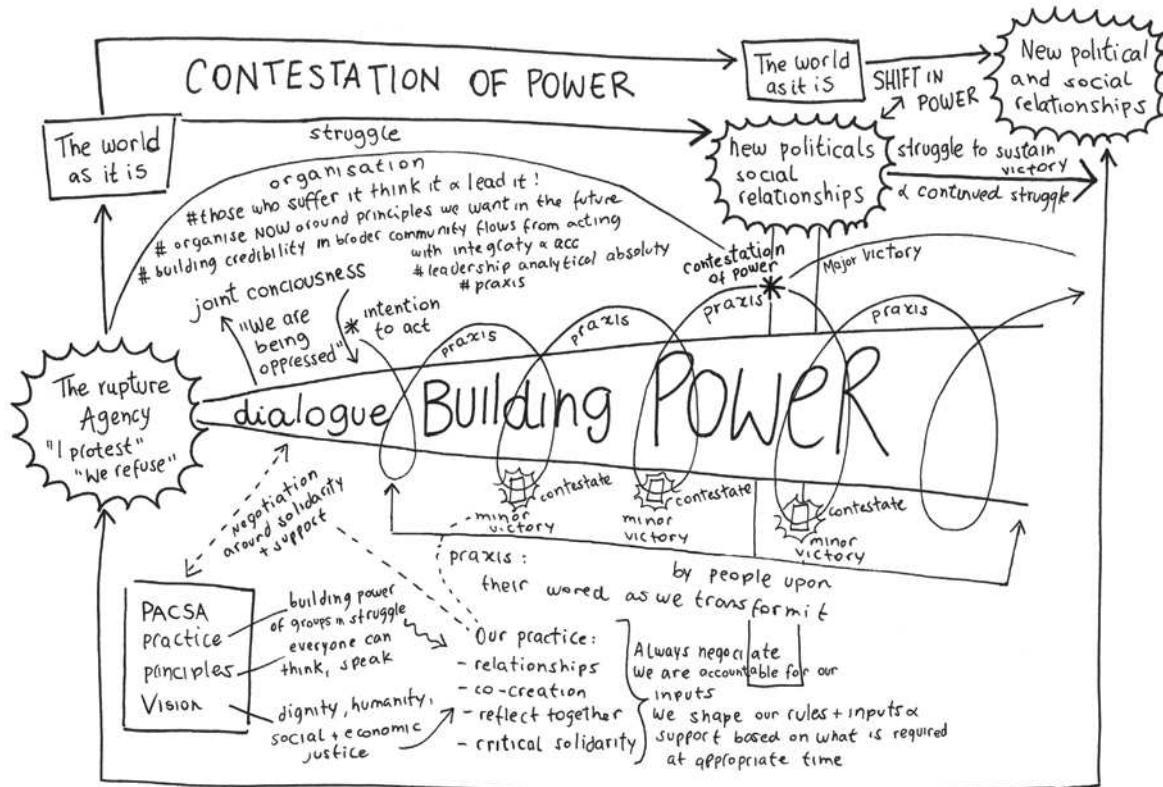 CONTESTATION OF POWER
The world
as it is
The world
as it is
SHIFT IN
POWER
New political
and social
relationships
struggle
new politicals
social
relationships
struggle to sustain
victory
∝ continued struggle
organisation
#those who suffer it think it ∝ lead it!
# organise NOW around principles we want in the future
# building credibility in broder community flows from acting
with integraty ∝ acc
#leadership analytical absoluty
# praxis
joint conciousness
"We are
being
oppressed"
* intention
to act
contestation
of power
*
Major victory
praxis
praxis
praxis
praxis
The rupture
Agency
"I protest"
"We refuse"
dialogue Building POWeR
contestate
minor
victory
contestate
minor
victory
contestate
minor
victory
negotiation
around solidarity
+ support
praxis:
by people upon
their wored as we transformit
PACSA
practice
principles
Vision
building power
of groups in struggle
everyone can
think, speak
dignity, humanity,
social + economic
justice
Our practice:
- relationships
- co-creation
- reflect together
- critical solidarity
Always negociate
We are accountable for our
inputs
We shape our rules + inputs ∝
support based on what is required
at appropriate time